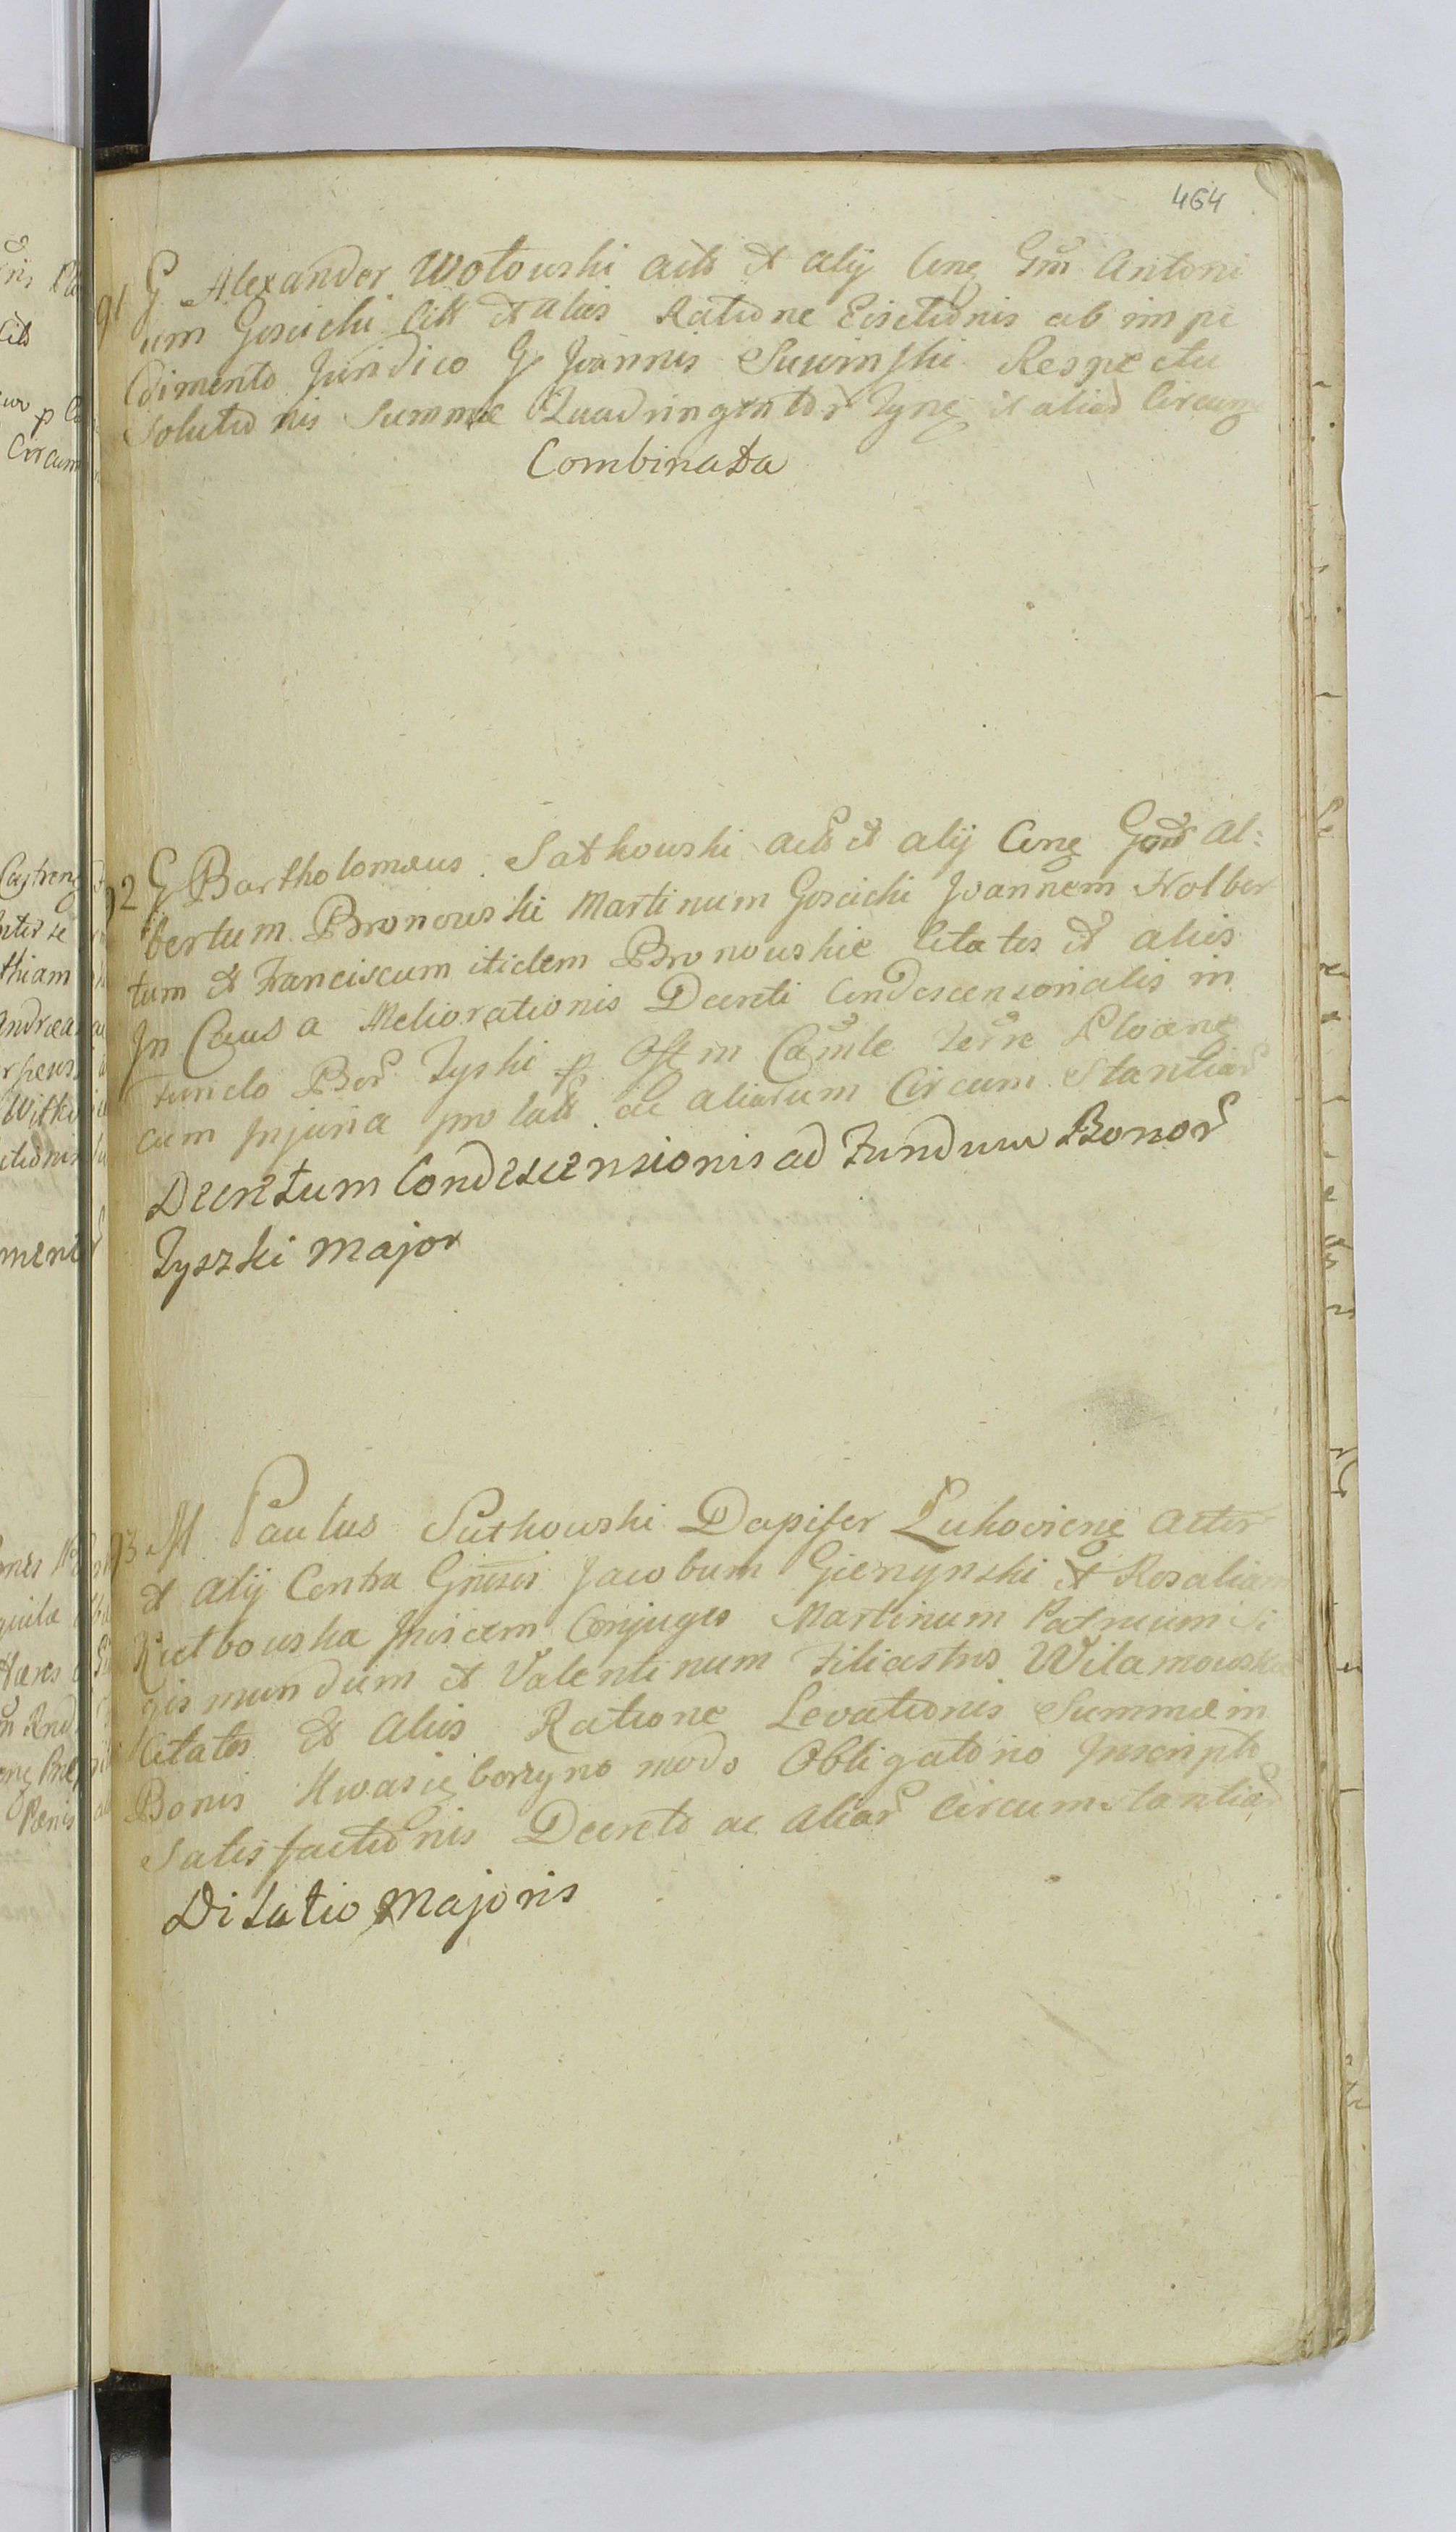 464
91 G Alexander Wołowski Acts et alij Cong Gm Antoni
um Goscicki Citt et alios Ratione Evictionis ab impe
dimento Juridico G Joannis Suwinski Respectu
Solutionis Summae Quadringentor Tynf et aliad Circumf
Combinata
92 G Bartholomæus Sutkowski Acts et alij Cong Gnos Al:
bertum Bronowski Martinum Goscicki Joannem Nolber
tum et Franciscum itidem Bronowskie Citatos et alios
In Causa Meliorationis Decreti Condescensorialis in
Fundo Bor Zyski p Off m Camle Terræ Plocens
cum Injuria prolati ac aliarum Circum Stantiar
Decretum Condescensionis ad Fundum Bonor
Zyszki Major
93 M Paulus Sutkowski Dapifer Lukoviens Actor
et alij Contra Gnosos Jacobum Gienynski et Rosaliam
Kietbowska Invicem Conjuges Martinum Patruum Si
gismundum et Valentinum Filiastros Wilamowskie
Citatos et alios Ratione Levationis Summæ in
Bonis Kwasieborzyno modo Obligatorio Inscripto
Satisfactionis Decreto ac aliar Circumstantiar
Dilatio Majoris